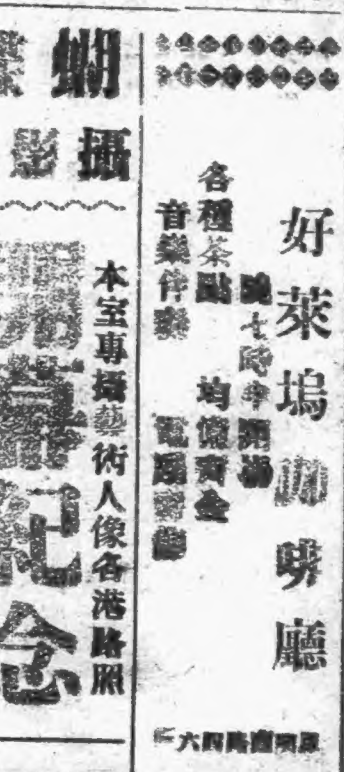 好萊塢咖啡廳
晚七時半開場
各種茶點 均備齊全
音樂伴奏 電
六四路
蝴蝶
攝影
本室專攝藝術人像各港路照
開幕紀念